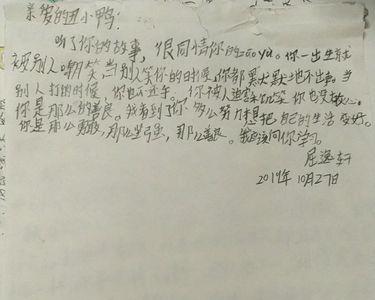 亲爱的丑小鸭:
听了你的故事,很同情你的zāo yù。你一出生就
被别人嘲笑,当别人笑你的时候,你都默默地不出声。当
别人打的时候,你也不还手。你被人迫害和讥笑你也没放心。
你是那么的善良。我看到了你多么努力想把自己的生活变好。
你是那么勇敢,那么坚强,那么善良。我应该向你学习。
屈逸轩
2019年10月27日